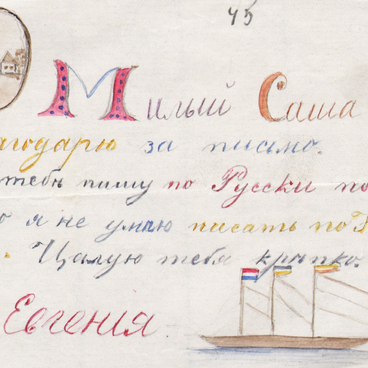 45
Милый Саша
агодарю за письмо.
тебѣ пишу по Русски по
о я не умѣю писать по
Цалую тебя крѣпко.
Евгенія